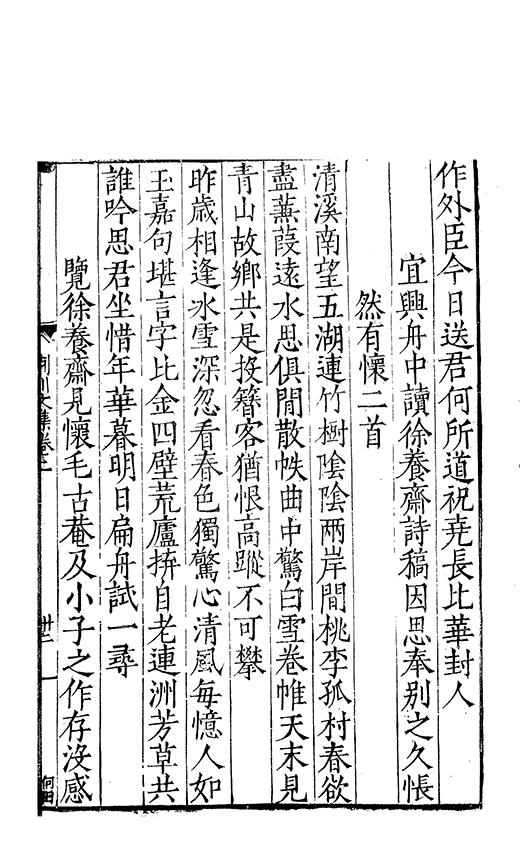 作外臣今日送君何所道祝堯長比華封人
宜興舟中讀徐養齋詩稿因思奉别之久悵
然有懷二首
清溪南望五湖連竹樹陰陰兩岸間桃李孤村春欲
盡蒹葭遠水思俱閒散帙曲中驚白雪卷帷天末見
青山故鄉共是投簪客猶恨高蹤不可攀
昨歲相逢冰雪深忽看春色獨驚心清風每憶人如
玉嘉句堪言字比金四壁荒廬拚自老連洲芳草共
誰吟思君坐惜年華暮明日扁舟試一尋
覽徐養齋見懷毛古菴及小子之作存沒感
荆川文集卷三